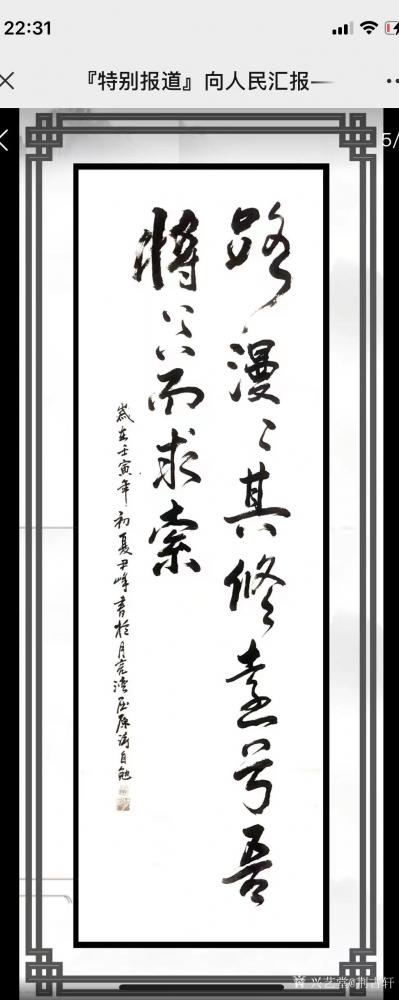 22:31
『特别报道』向人民汇报一
5/
路漫〻其修遠兮吾
將上下而求索
歲在壬寅年初夏尹峰書於月亮湾屈原诗自勉
兴艺堂@荆古轩